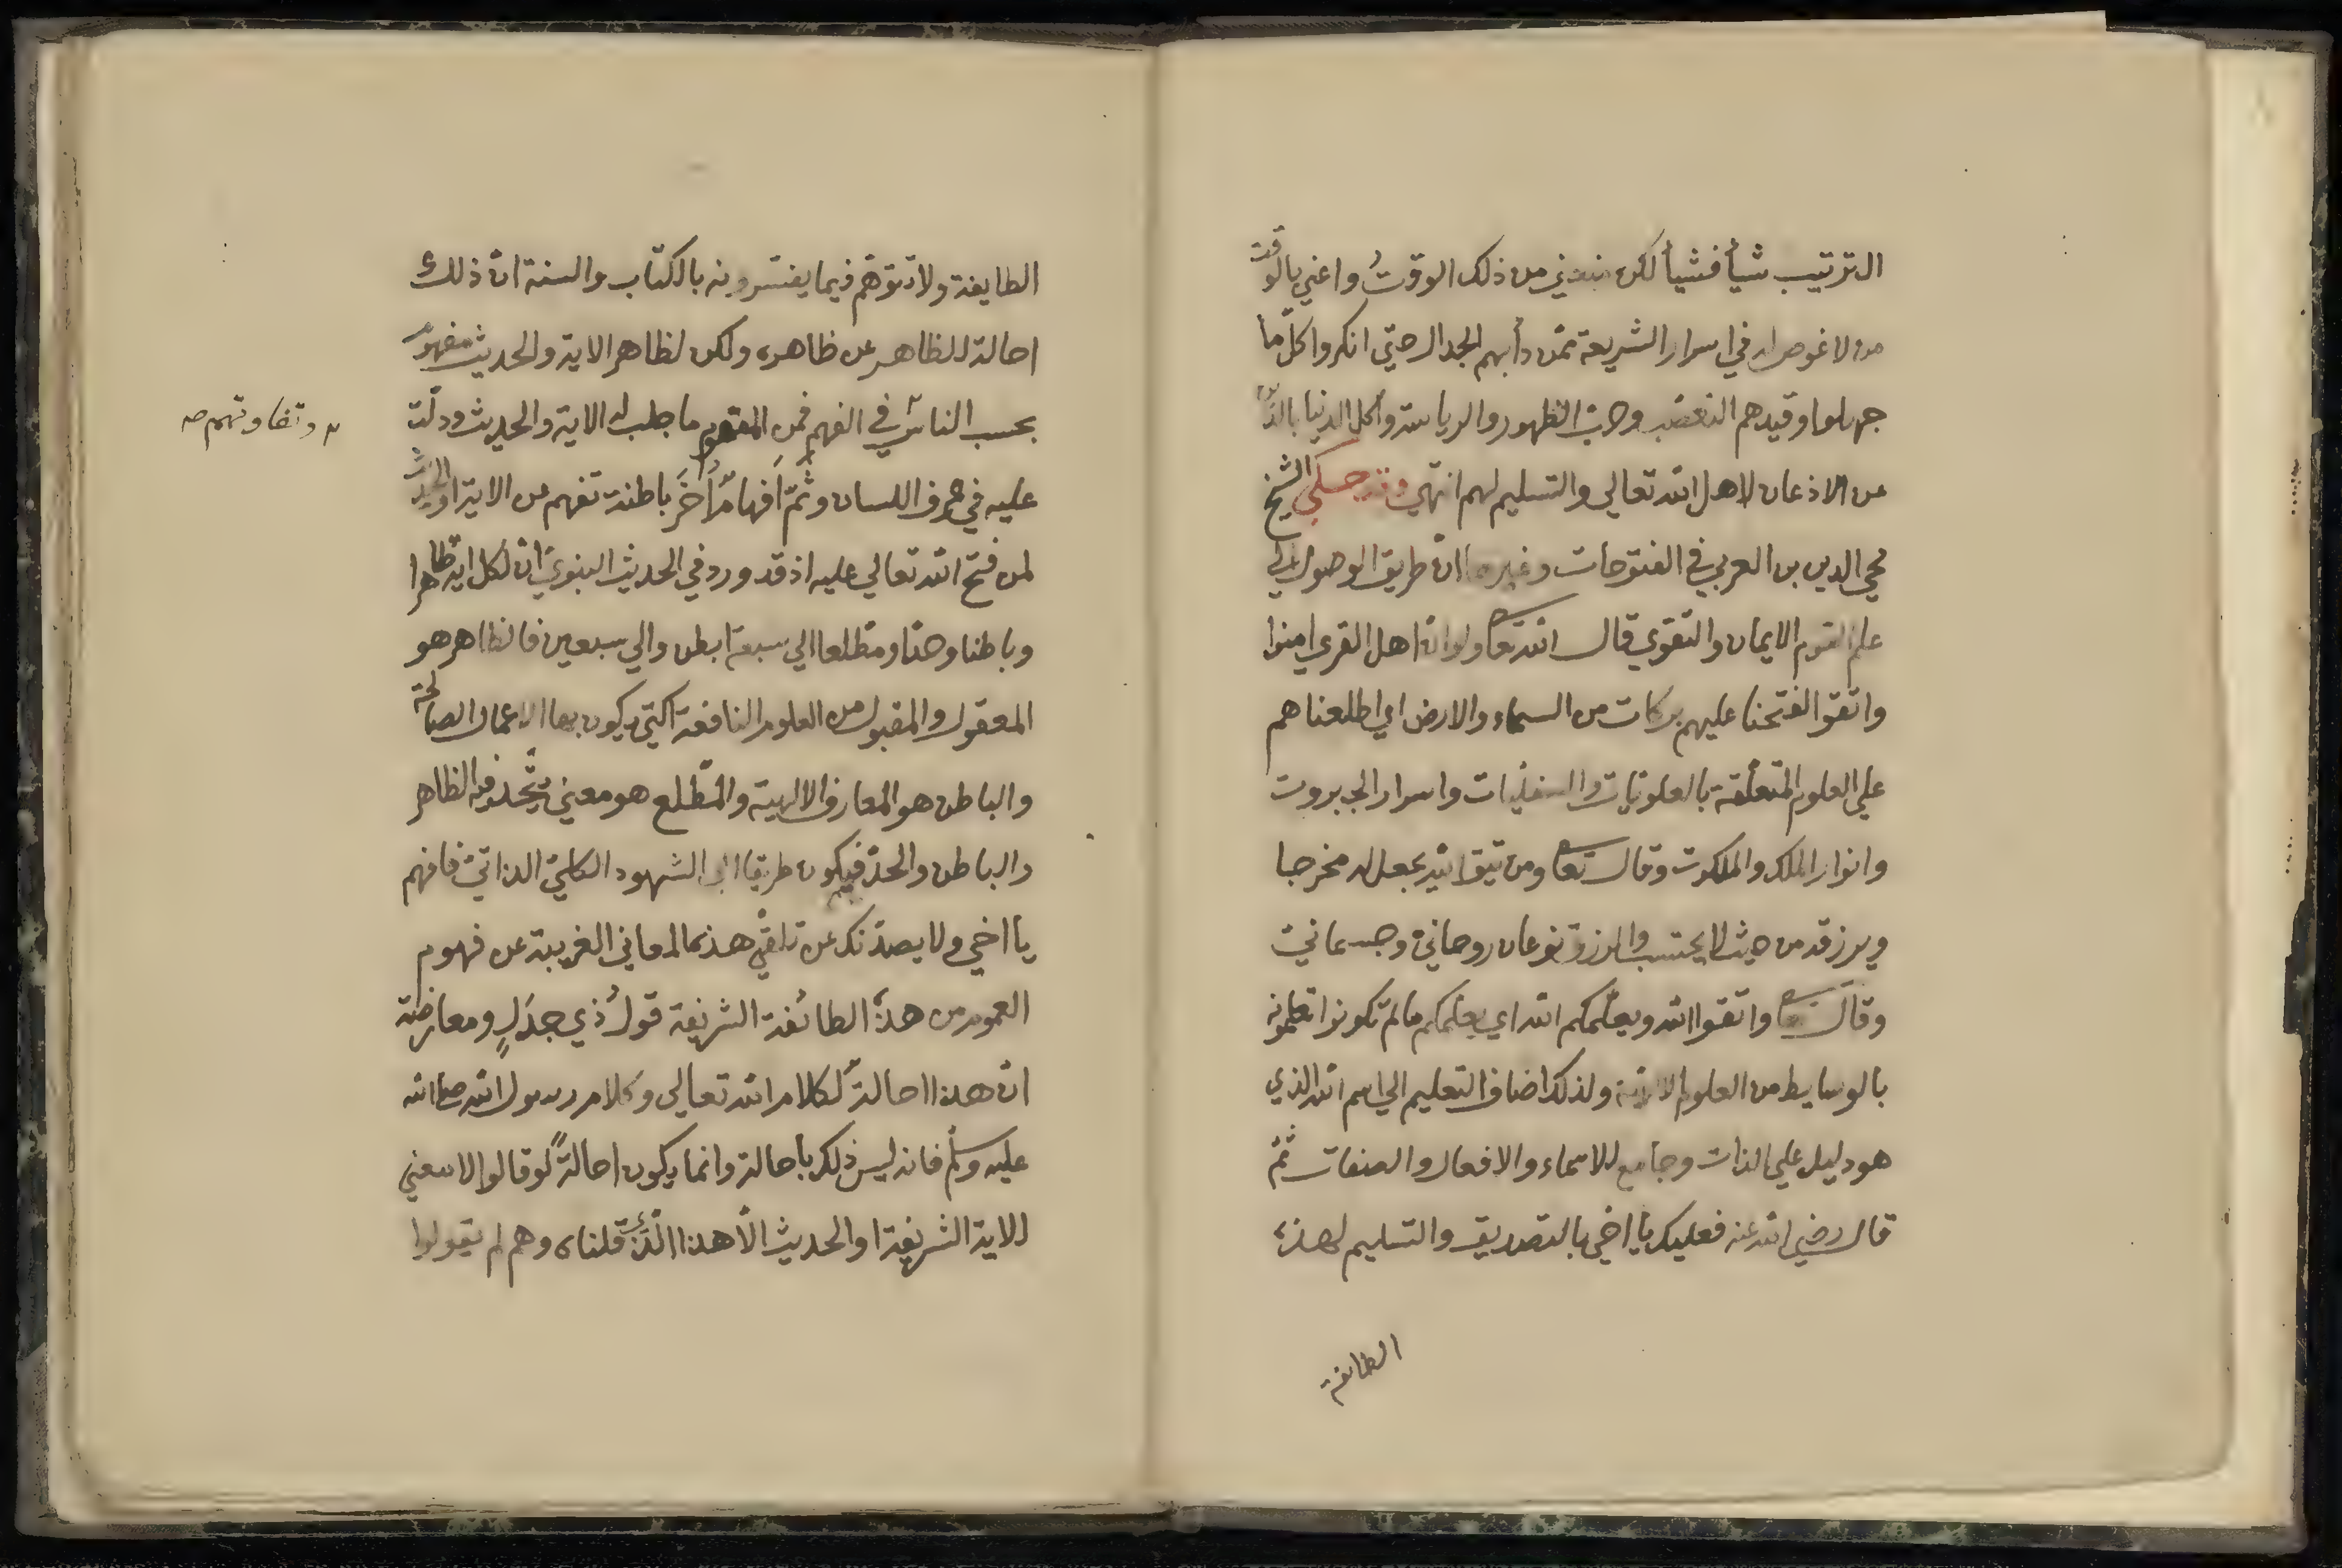 الترتيب شيأ فشيأ لكن منعني من ذلك الوقت واعني بالوقت
من لا غوص له في اسرار الشريعة ممن دأبهم الجدال حتي انكروا كل ما
جهلوا وقيدهم التعصب وحب الظهور والرياسة واكل الدنيا بالدين
عن الاذعان لاهل الله تعالي والتسليم لهم انتهي وقد حكي الشيخ
محي الدين بن العربي في الفتوحات وغيرها ان طريق الوصول الي
علم القوم الايمان والتقوي قال الله تعا ولو ان اهل القري امنوا
واتقوا لفتحنا عليهم بركات من السماء والارض اي اطلعناهم
علي العلوم المتعلقة بالعلويات والسفليات واسرار الجبروت
وانوار الملك والملكوت وقال تعا ومن يتق الله يجعل له مخرجا
ويرزقه من حيث لا يحتسب والرزق نوعان روحاني وجسماني
وقال تعا واتقوا الله ويعلمكم الله اي يعلمكم ما لم تكونوا تعلمونه
بالوسايط من العلوم الالهية ولذلك اضاف التعليم الي اسم الله الذي
هو دليل علي الذات وجامع للاسماء والافعال والصفات ثم
قال رضي الله عنه فعليك يا اخي بالتصديق والتسليم لهذه
الطايفة
الطايفة ولا تتوهم فيما يفسرون به الكتاب والسنة ان ذلك
احالة للظاهر عن ظاهره ولكن لظاهر الاية والحديث مفهوم
بحسب الناس في الفهم فمن المفهوم ما جلب له الاية والحديث ودلت
وتفاوتهم صح
عليه في عرف اللسان وثم افهام اخر باطنة تفهم من الاية او الحديث
لمن فتح الله تعالي عليه اذ قد ورد في الحديث النبوي ان لكل اية ظاهرا
وباطنا وحدا ومطلعا الي سبعة ابطن والي سبعين فالظاهر هو
المعقول والمقبول من العلوم النافعة التي يكون بها الاعمال الصالحة
والباطن هو المعارف الالهية والمطلع هو معني يتحد فيه الظاهر
والباطن والحد فيكون طريقا الي الشهود الكلي الذاتي فافهم
يا اخي ولا يصدنك عن تلقي هذه المعاني الغريبة عن فهوم
العموم من هذه الطائفة الشريفة قول ذي جدل ومعارضة
ان هذا احالة لكلام الله تعالي وكلام رسول الله صلي الله
عليه وسلم فانه ليس ذلك باحالة وانما يكون احالة لو قالوا لا معني
للاية الشريفة او الحديث الا هذا الذي قلناه وهم لم يقولوا